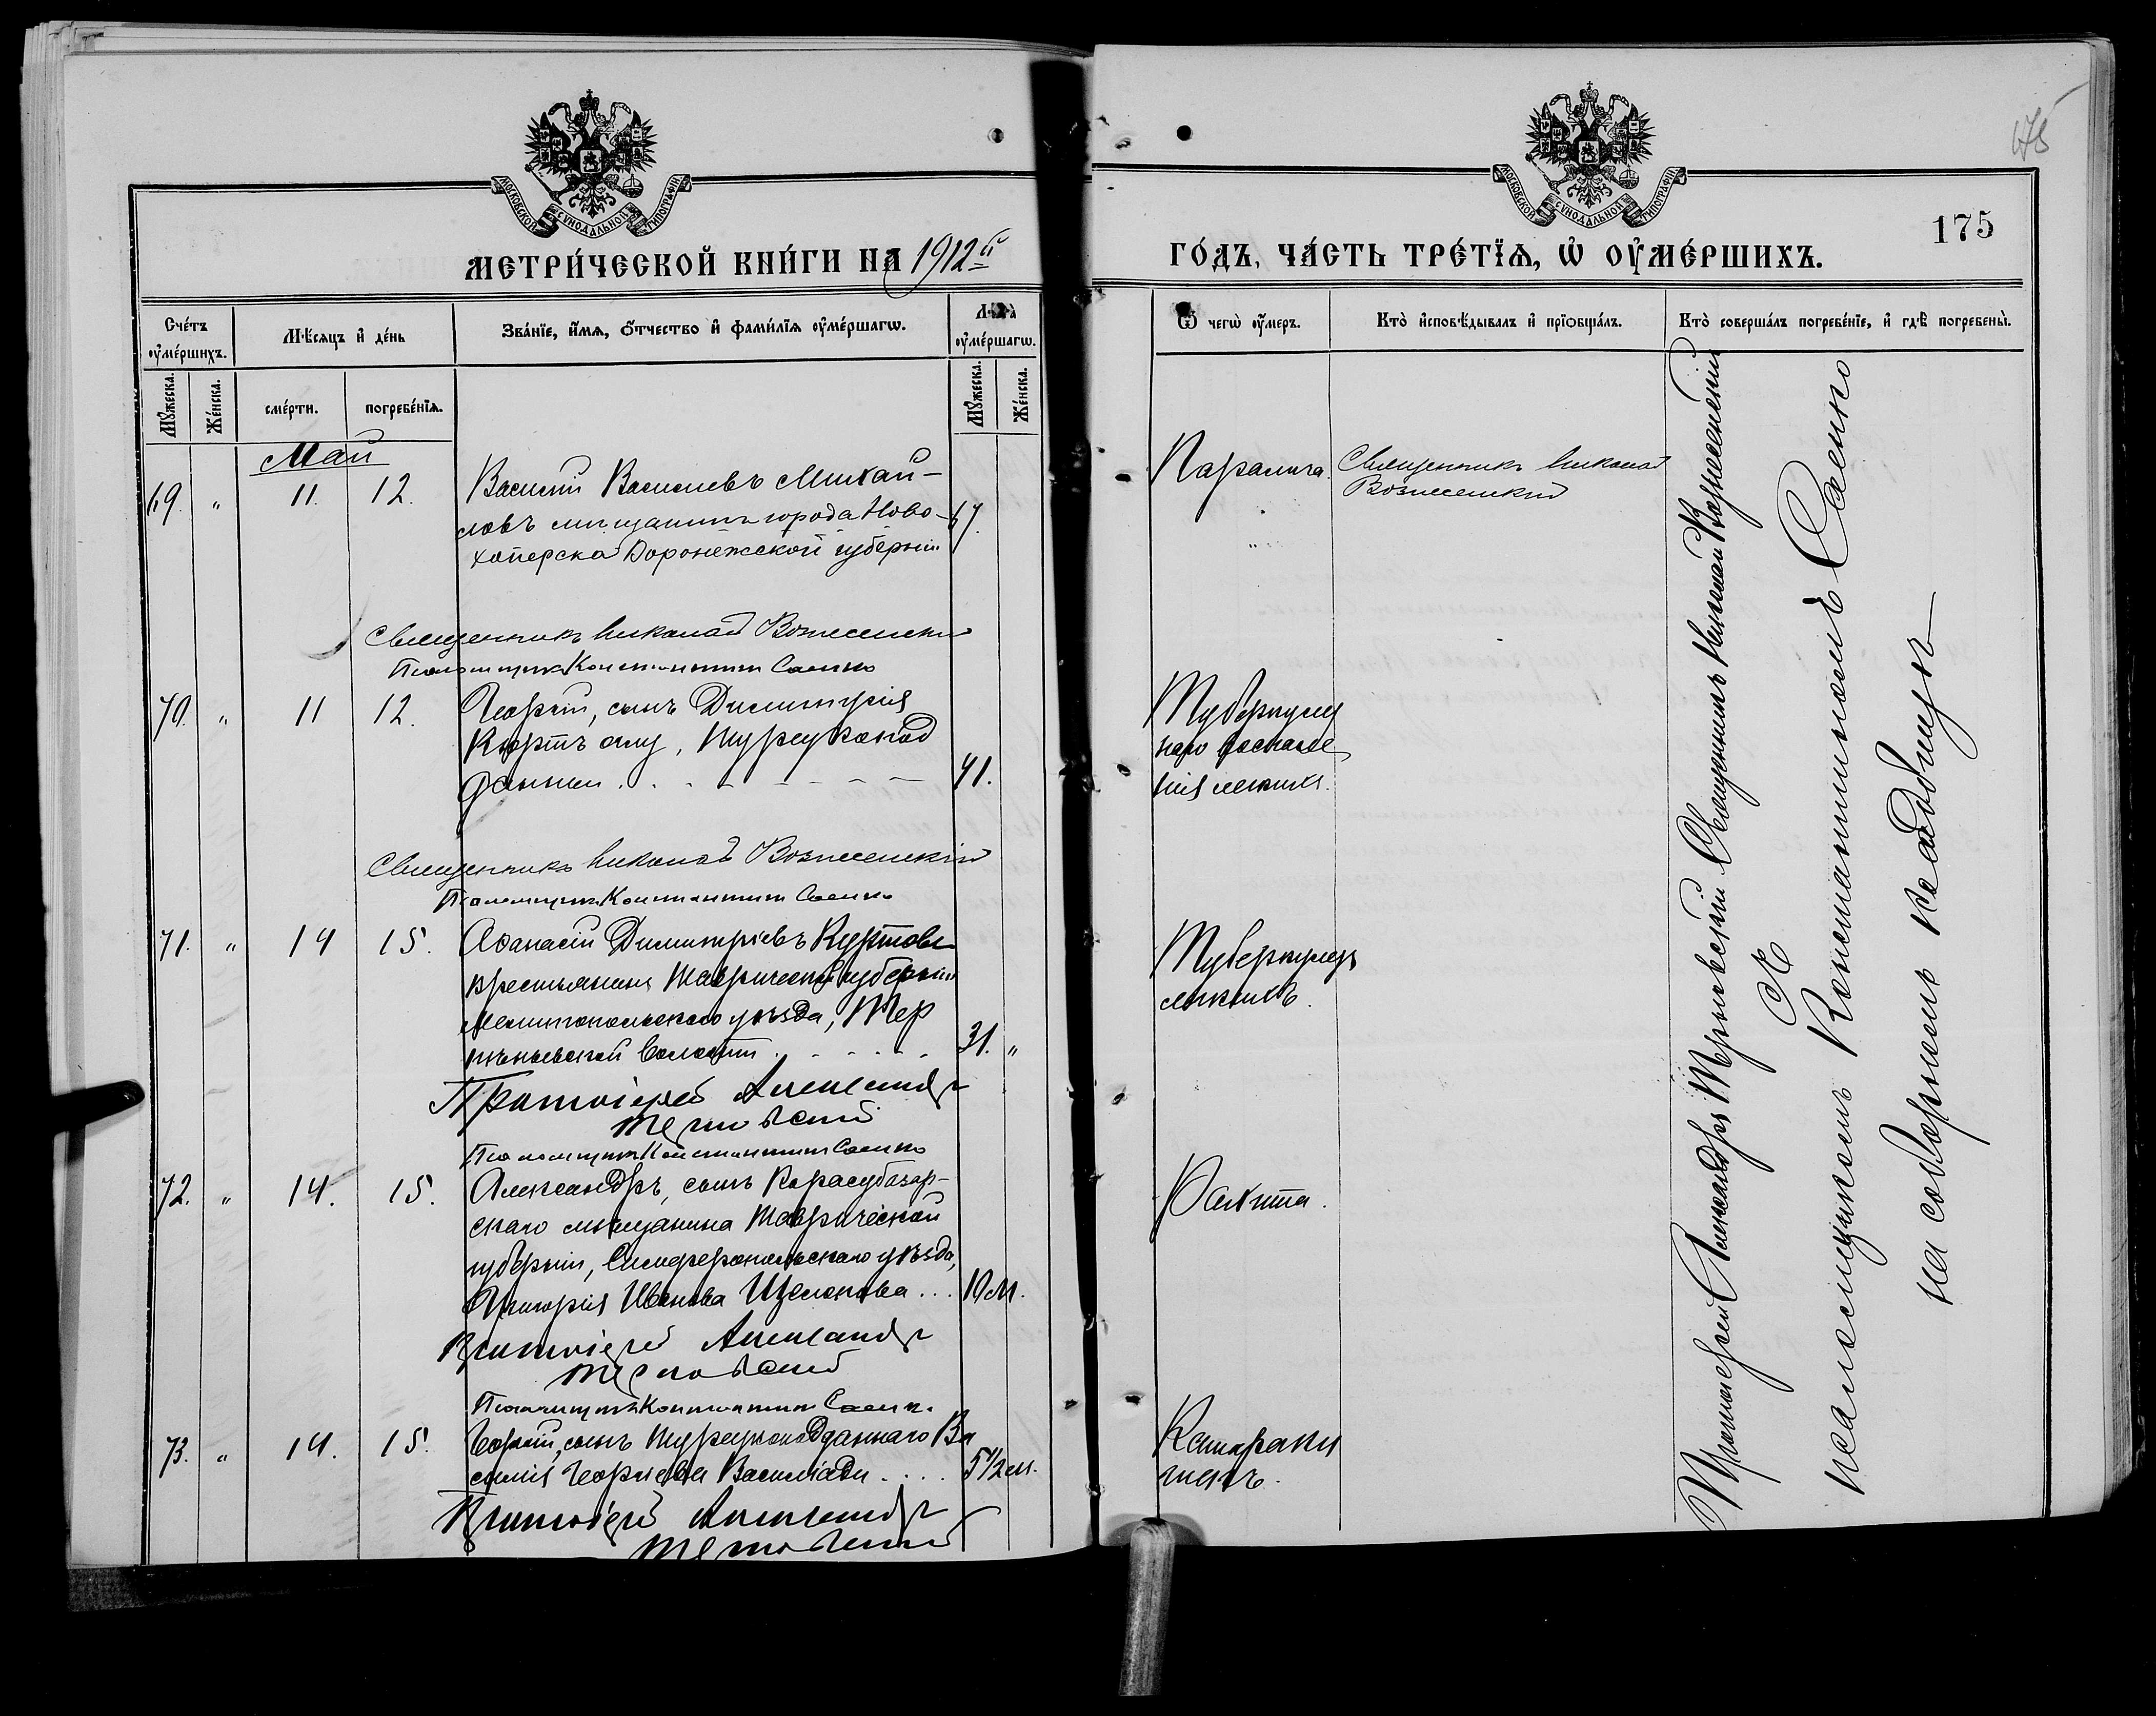 МОСКОВСКОЙ СѴНОДАЛЬНОЙ ТИПОГРАФІИ.
МЕТРИ́ЧЕСКОЙ КНИ́ГИ НА 1912й
Сче́тъ ᲂу҆ме́ршихъ.
Мꙋ́жеска.
Же́нска.
Мѣ́сяцъ и҆ де́нь
сме́рти.
погребе́нїѧ.
Зва́нїе, и҆́мѧ, ѻ҆́тчество и҆ фами́лїѧ ᲂу҆ме́ршагѡ.
Лѣ́та ᲂу҆ме́ршагѡ.
Мꙋ́жеска.
Же́нска.
Май
69. " 11. 12. Василій Васильевъ Михай-
ловъ мѣщанинъ города Ново- 67.
хоперска Воронежской губерніи
Священникъ Николай Вознесенскій
Псаломщикъ Константинъ Саенко
70. " 11 12. Георгій, сынъ Димитрія
Кюртъ оглу, турецкопод
данный. 41.
Священникъ Николай Вознесенскій
Псаломщикъ Константинъ Саенко
71. " 14 15. Аѳанасій Димитріевъ Куртовъ
крестьянинъ Таврической губерніи
Мелитопольскаго уѣзда, Тер
пѣньевской волости 31. "
Протоіерей Александръ
Терновскій
Псаломщикъ Константинъ Саенко
72. " 14. 15. Александръ, сынъ Карасубазар-
скаго мѣщанина Таврической
губерніи, Симферопольскаго уѣзда,
Григорія Иванова Щелокова ... 10 м.
Протоіерей Александръ
Терновскій
Псаломщикъ Константинъ Саенко
73. " 14. 15. Георгій, сынъ турецкоподданнаго Ва
силія Георгіева Василіади .... 5 1/2 м.
Протоіерей Александръ
Терновскій
175
МОСКОВСКОЙ СѴНОДАЛЬНОЙ ТИПОГРАФІИ.
175
ГО́ДЪ, ЧА́СТЬ ТРЕ́ТЇѦ, Ѡ҆ ОУ҆МЕ́РШИХЪ.
Ѿ чегѡ̀ ᲂу҆́меръ.
Кто̀ и҆сповѣ́дывалъ и҆ прїѡбща́лъ.
Кто̀ соверша́лъ погребе́нїе, и҆ гдѣ̀ погребены̀.
Паралича
Священникъ Николай
Вознесенскій
Туберкулез
наго воспале
нія легкихъ.
Туберкулезъ
легкихъ.
Рахита.
Катаръ ки
шекъ.
Протоіерей Александръ Терновскій Священникъ Николай Вознесенскій
съ
псаломщикомъ Константиномъ Саенко
на соборномъ кладбищѣ